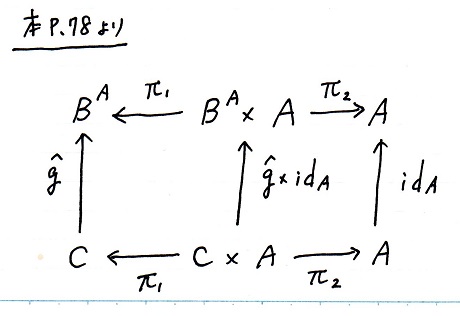 本P.78より
B^A ←π₁ B^A × A π₂→ A
ĝ ↑ ↑ ĝ×id_A ↑ id_A
C ←π₁ C × A π₂→ A